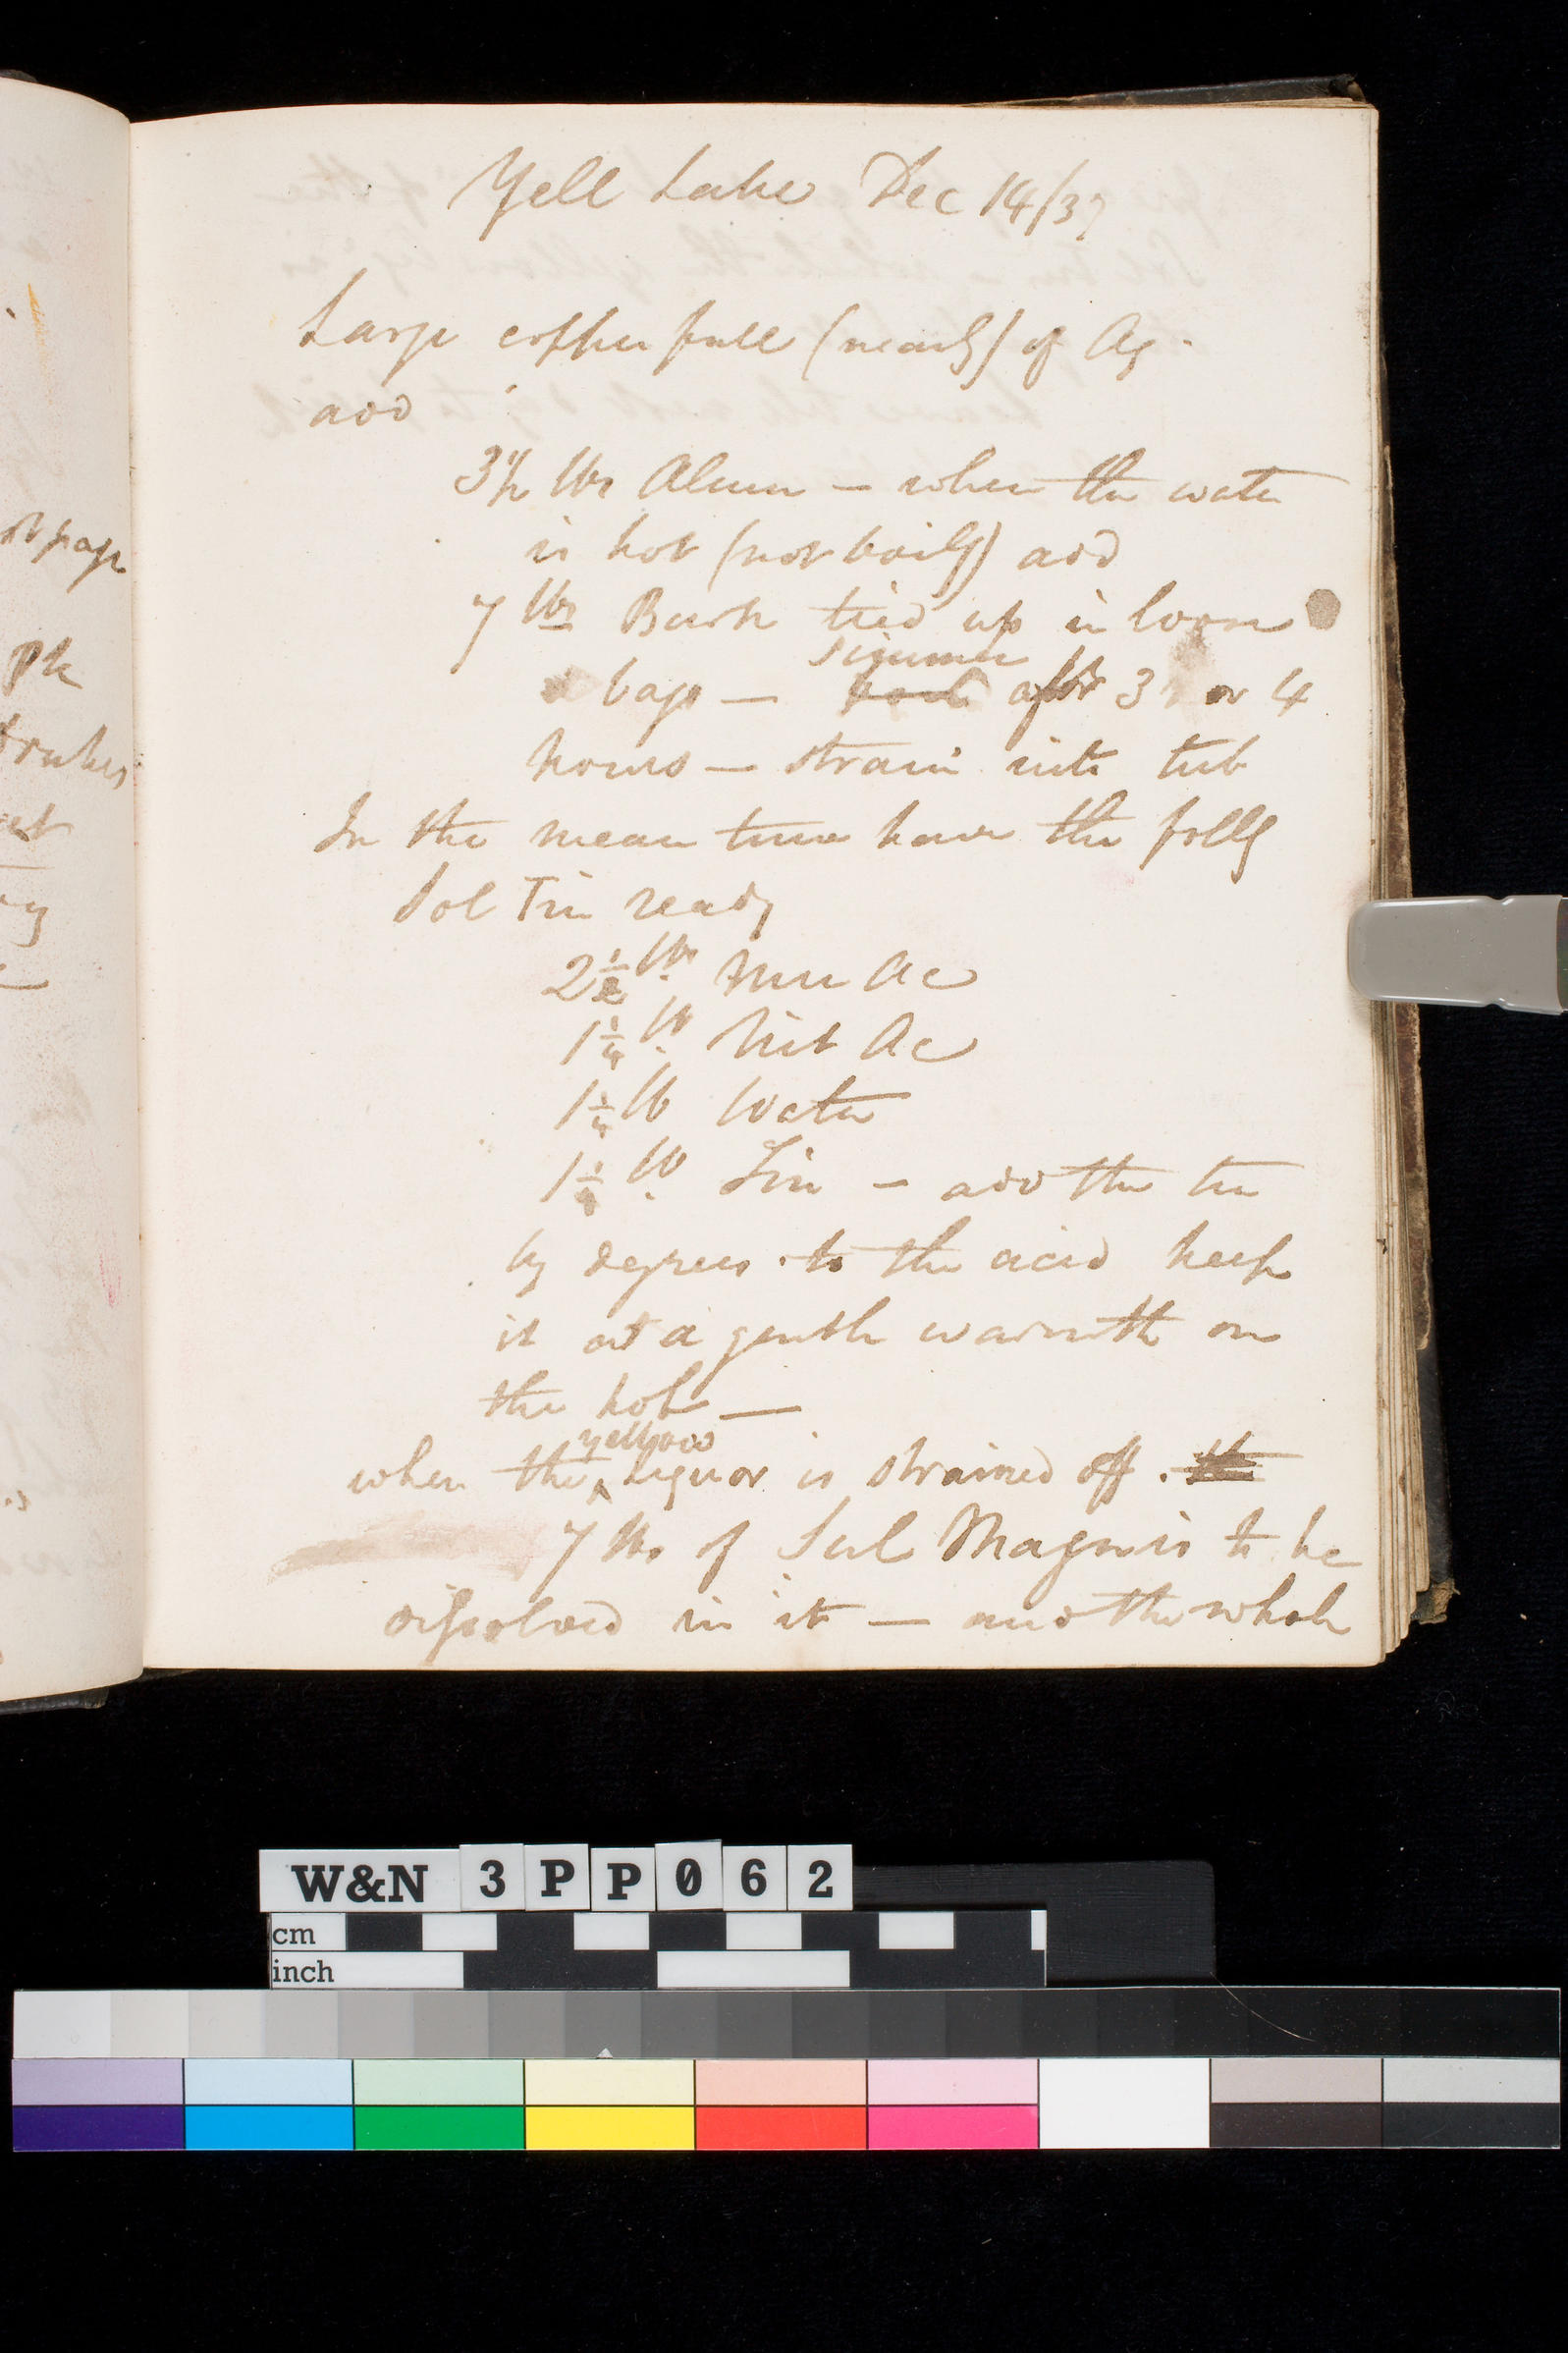 Yell Lake Dec 14/37
Large copper full (nearly) of Aq.
add
3 1/2 lbs Alum — when the water
is hot (not boilg) add
7 lbs Bark tied up in loose
bags — simmer after 3 or 4
hours — strain into tub
In the mean time have the follg
Sol Tin ready
2 1/2 lbs Mur Ac
1 1/4 lb Nit Ac
1 1/4 lb Water
1 1/4 lb Tin — add the tin
by degrees to the acid keep
it at a gentle warmth on
the hob —
when the yellow liquor is strained off.
7 lbs of Sul Magnis to be
dissolved in it — and the whole
st page
Pk
W&N 3PP062
cm
inch